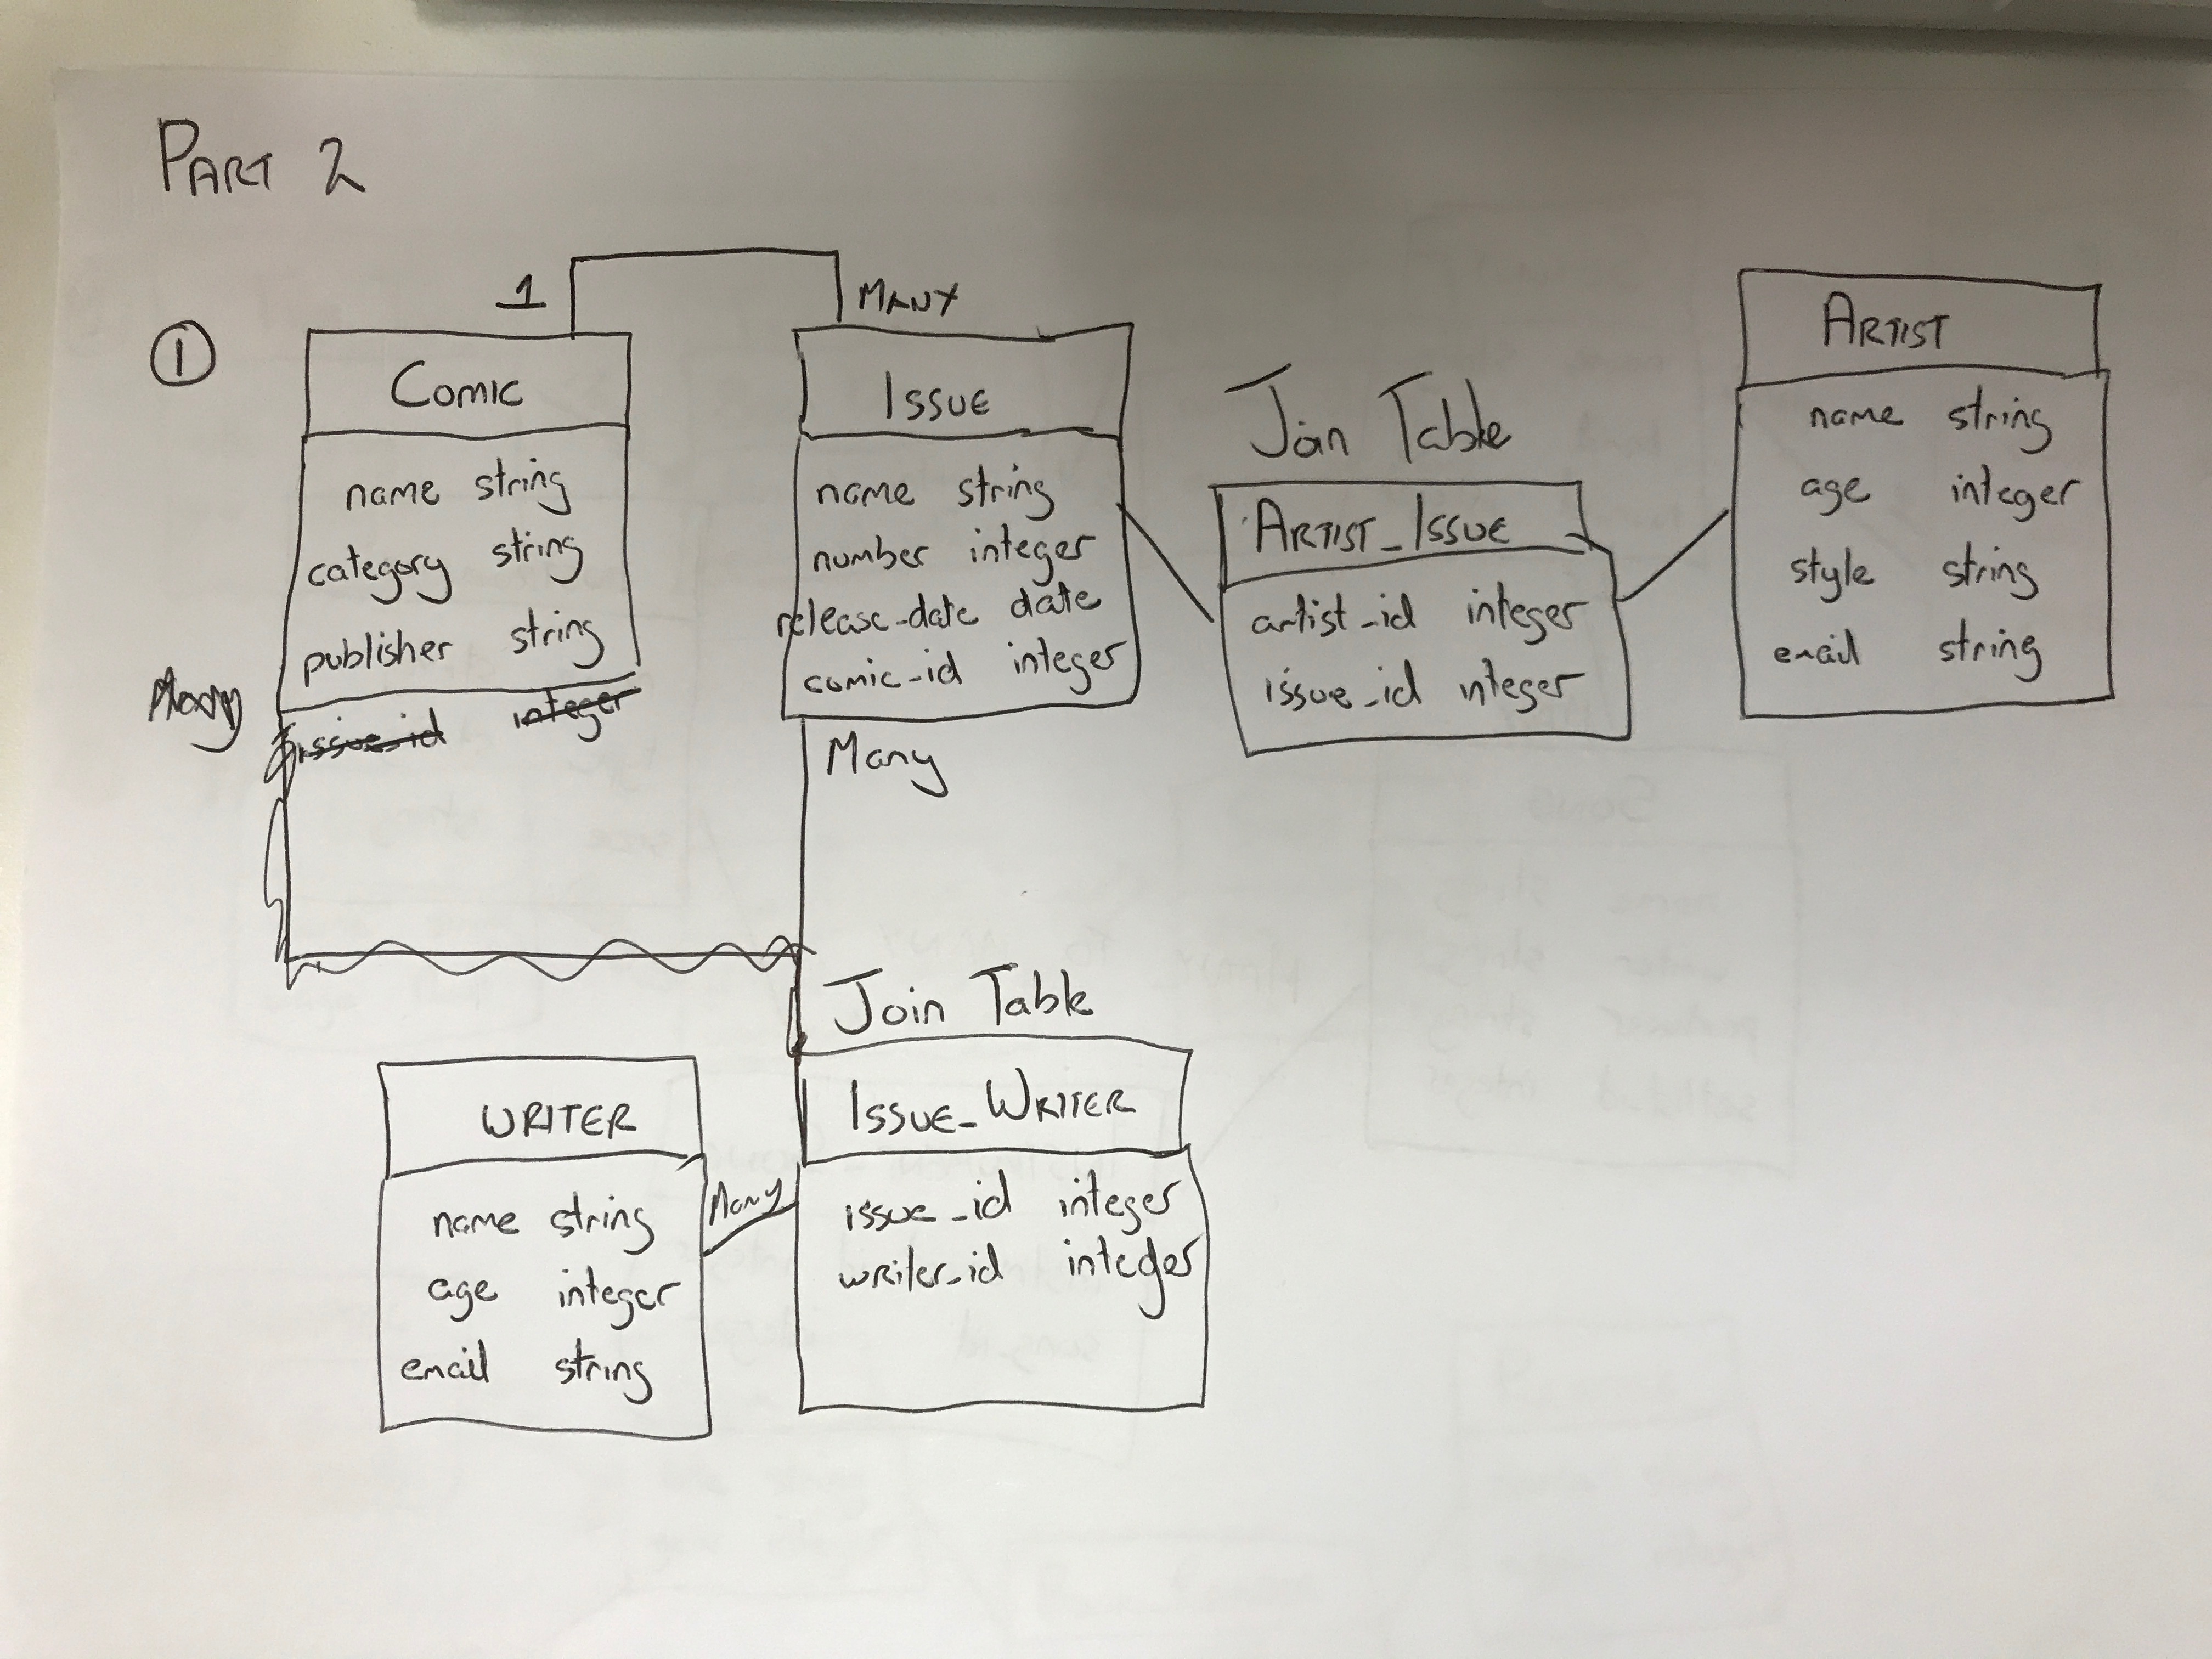 PART 2
1
MANY
1
COMIC
name string
category string
publisher string
issue_id integer
Many
ISSUE
name string
number integer
release_date date
comic_id integer
Many
Join Table
ARTIST_ISSUE
artist_id integer
issue_id integer
ARTIST
name string
age integer
style string
email string
Join Table
WRITER
name string
age integer
email string
Many
ISSUE_WRITER
issue_id integer
writer_id integer